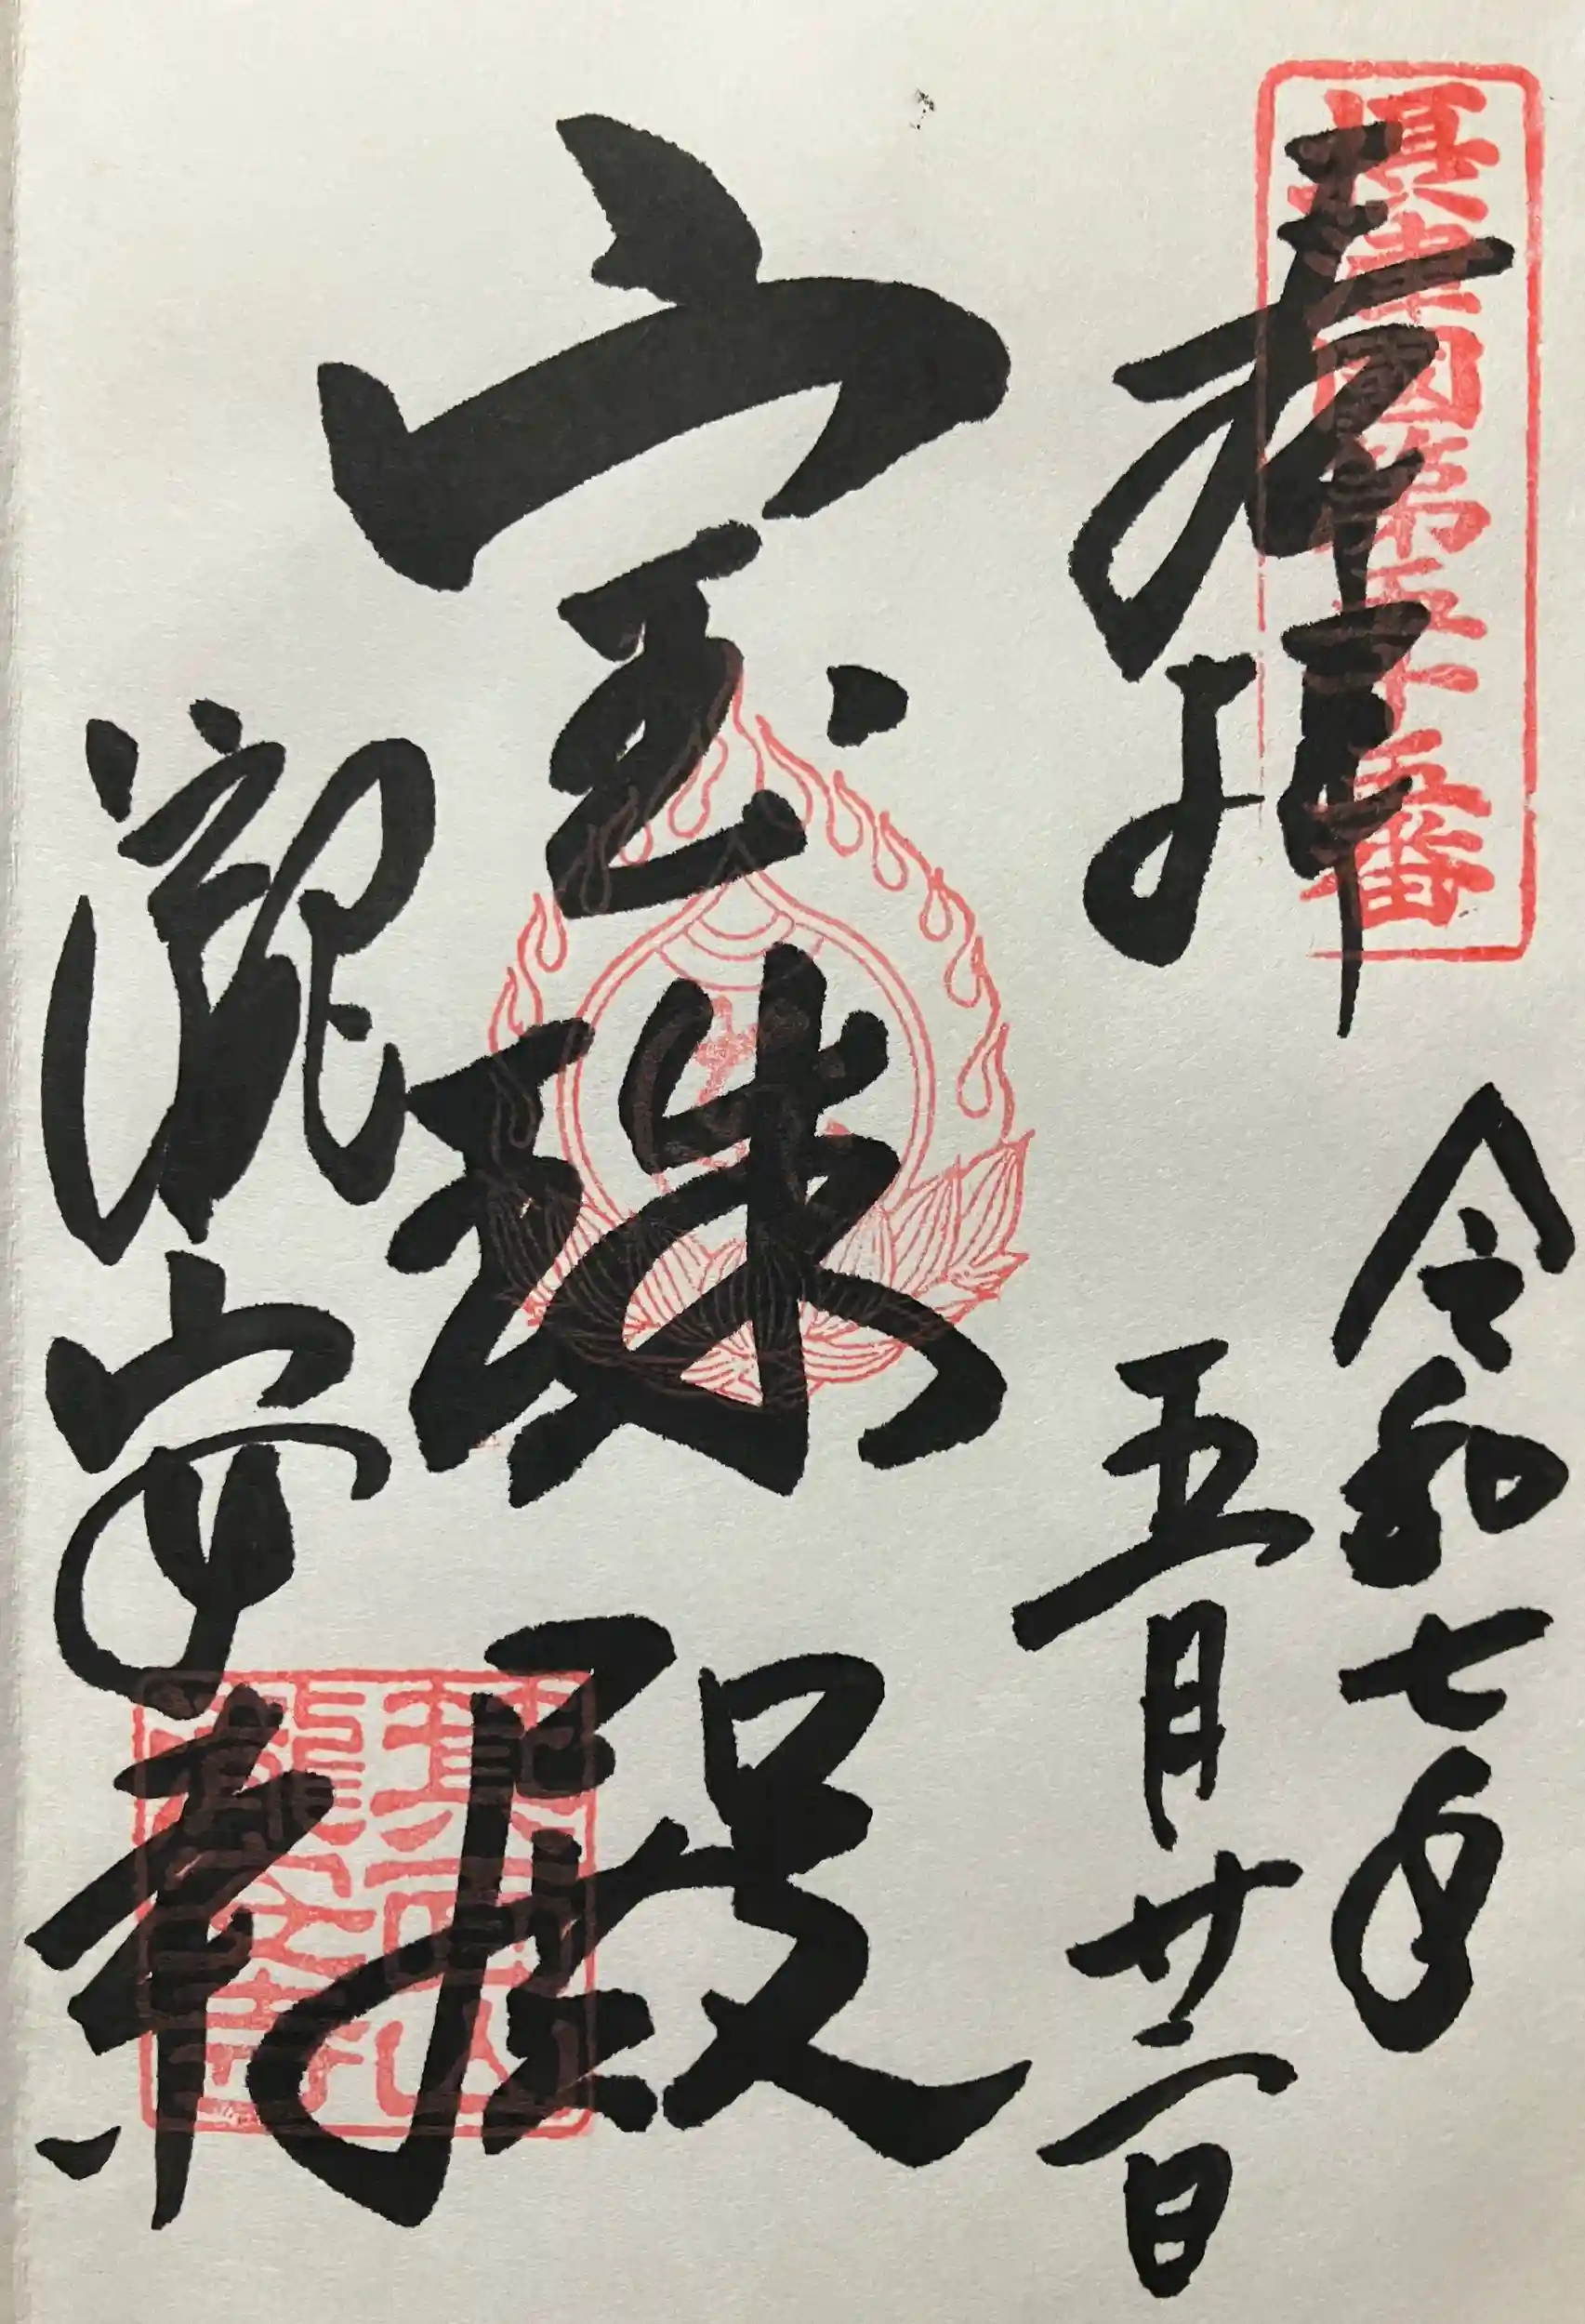 奉拝
摂津國第五十五番
令和七年
五月廿二日
宝珠殿
瀧安寺
箕面山
瀧安寺